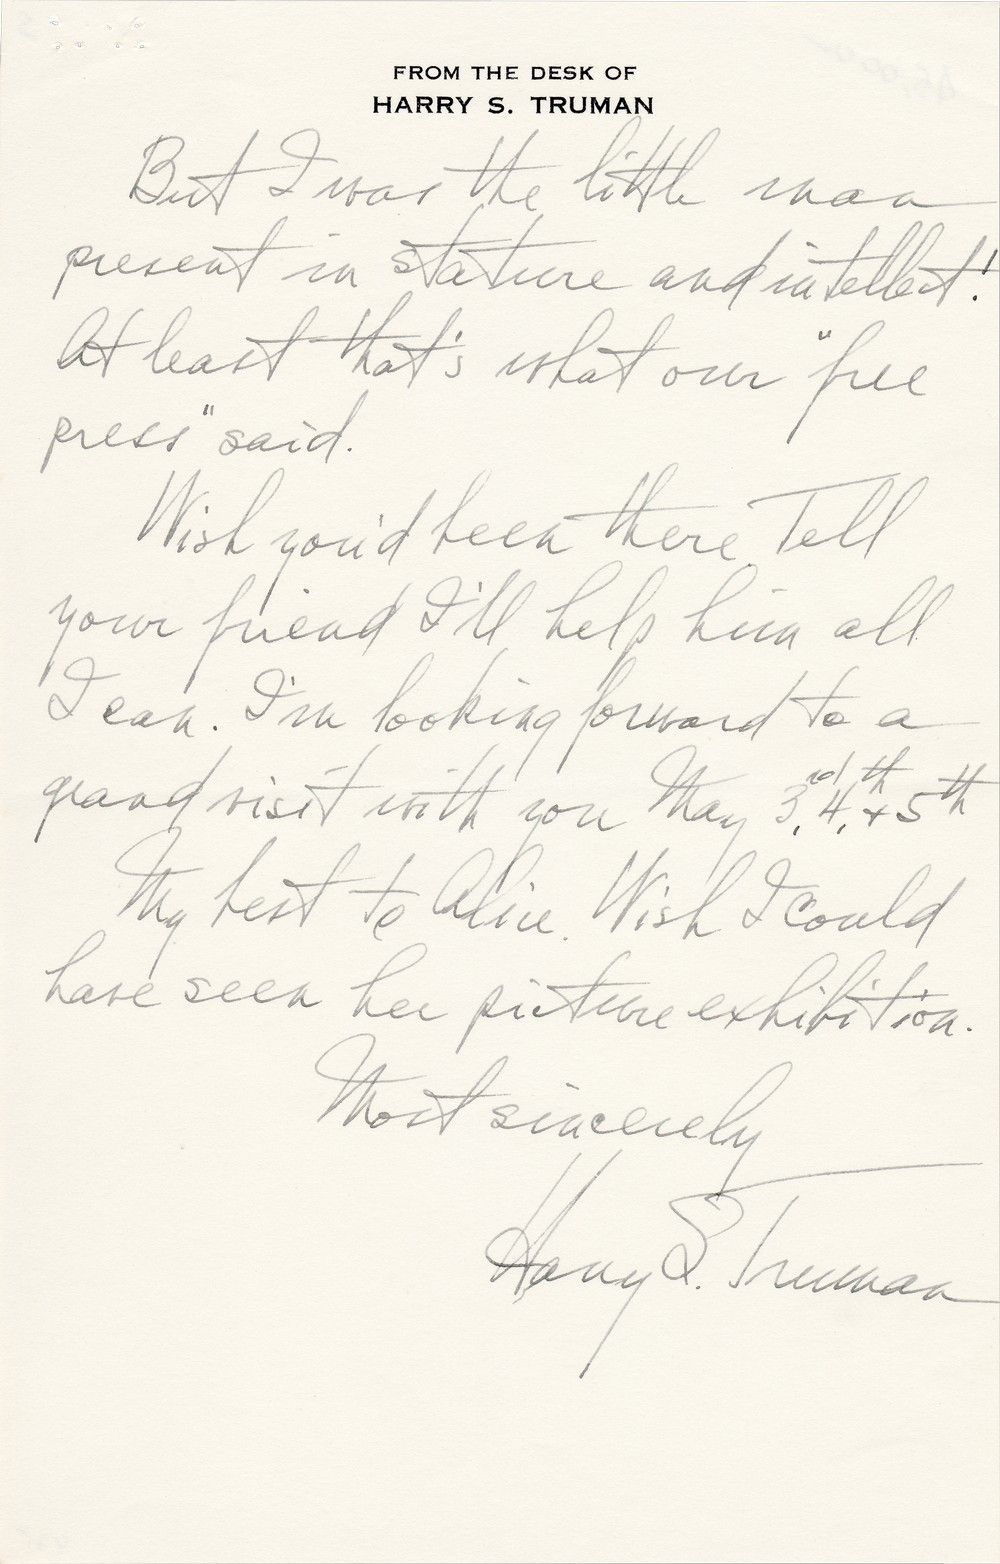 FROM THE DESK OF
HARRY S. TRUMAN
But I was the little man
present in stature and intellect!
At least that's what our "free
press" said.
Wish you'd been there. Tell
your friend I'll help him all
I can. I'm looking forward to a
grand visit with you May 3rd, 4th, + 5th
My best to Alice. Wish I could
have seen her picture exhibition.
Most sincerely
Harry S. Truman